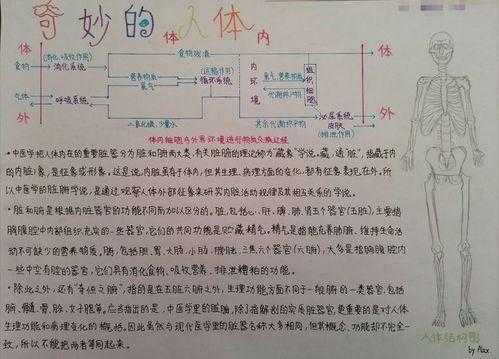 奇妙的人体
体 体 内 体
食物 (消化、吸收作用) 消化系统 食物残渣
营养物质 (运输作用) 循环系统 内环境 氧气、营养物质 组织细胞
氧气 代谢终产物
气体 呼吸系统
外 二氧化碳、少量水 其余代谢终产物 泌尿系统 皮肤 (排泄作用) 外
体内细胞与外界环境进行物质交换过程
·中医学把人体内在的重要脏器分为脏和腑两大类,有关脏腑的理论称为“藏象”学说。藏,通“脏”,指藏于内
的内脏;象,是征象或形象。这是说,内脏虽存于体内,但其生理、病理方面的变化,都有征象表现在外。所
以中医学的脏腑学说,是通过观察人体外部征象来研究内脏活动规律及其相互关系的学说。
·脏和腑是根据内脏器官的功能不同而加以区分的。脏,包括心、肝、脾、肺、肾五个器官(五脏),主要指
胸腹腔中内部组织充实的一些器官,它们的共同功能是贮藏精气。精气是指能充养脏腑、维持生命活
动不可缺少的营养物质。腑,包括胆、胃、大肠、小肠、膀胱、三焦六个器官(六腑),大多是指胸腹腔内
一些中空有腔的器官,它们具有消化食物,吸收营养、排泄糟粕的功能。
·除此之外,还有“奇恒之腑”,指的是在五脏六腑之外,生理功能方面不同于一般腑的一类器官,包括
脑、髓、骨、脉、女子胞等。应当指出的是,中医学里的脏腑,除了指解剖的实质脏器官,更重要的是对人体
生理功能和病理变化的概括。因此虽然与现代医学里的脏器名称大多相同,但其概念、功能却不完全一
致,所以不能把两者等同起来。
人体结构图
by Alex.